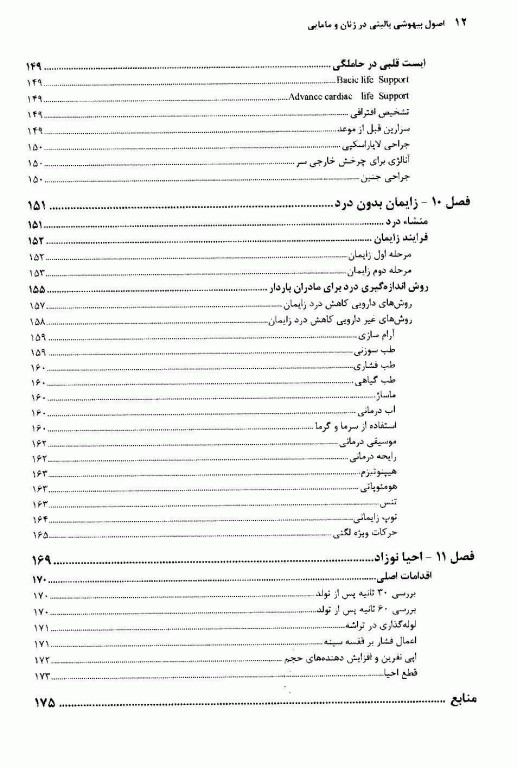 ۱۲ اصول بیهوشی بالینی در زنان و مامایی
ایست قلبی در حاملگی ۱۴۹
Bacic life Support ۱۴۹
Advance cardiac life Support ۱۴۹
تشخیص افتراقی ۱۴۹
سزارین قبل از موعد ۱۴۹
جراحی لاپاراسکپی ۱۵۰
آنالژی برای چرخش خارجی سر ۱۵۰
جراحی جنین ۱۵۰
فصل ۱۰ - زایمان بدون درد ۱۵۱
منشاء درد ۱۵۱
فرایند زایمان ۱۵۲
مرحله اول زایمان ۱۵۲
مرحله دوم زایمان ۱۵۳
روش اندازه‌گیری درد برای مادران باردار ۱۵۵
روش‌های دارویی کاهش درد زایمان ۱۵۷
روش‌های غیر دارویی کاهش درد زایمان ۱۵۸
آرام سازی ۱۵۹
طب سوزنی ۱۵۹
طب فشاری ۱۶۰
طب گیاهی ۱۶۰
ماساژ ۱۶۰
آب درمانی ۱۶۰
استفاده از سرما و گرما ۱۶۰
موسیقی درمانی ۱۶۲
رایحه درمانی ۱۶۲
هیپنوتیزم ۱۶۳
هومئوپاتی ۱۶۳
تنس ۱۶۳
توپ زایمانی ۱۶۴
حرکات ویژه لگنی ۱۶۵
فصل ۱۱ - احیا نوزاد ۱۶۹
اقدامات اصلی ۱۷۰
بررسی ۳۰ ثانیه پس از تولد ۱۷۰
بررسی ۶۰ ثانیه پس از تولد ۱۷۰
لوله‌گذاری در تراشه ۱۷۱
اعمال فشار بر قفسه سینه ۱۷۱
اپی نفرین و افزایش دهنده‌های حجم ۱۷۲
قطع احیا ۱۷۳
منابع ۱۷۵